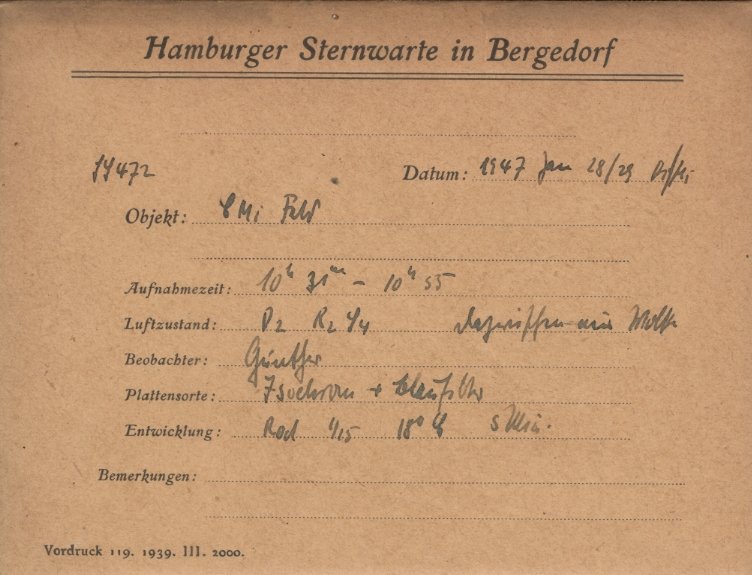 Hamburger Sternwarte in Bergedorf
472
Datum: 1947 Jan 28/29
Objekt: CMi Feld
Aufnahmezeit: 10h 31m - 10h 55
Luftzustand: P2 R2
Beobachter: Günther
Plattensorte: Isochrom +
Entwicklung: Rod 1/15 18° C 5 Min.
Bemerkungen:
Vordruck 119. 1939. III. 2000.